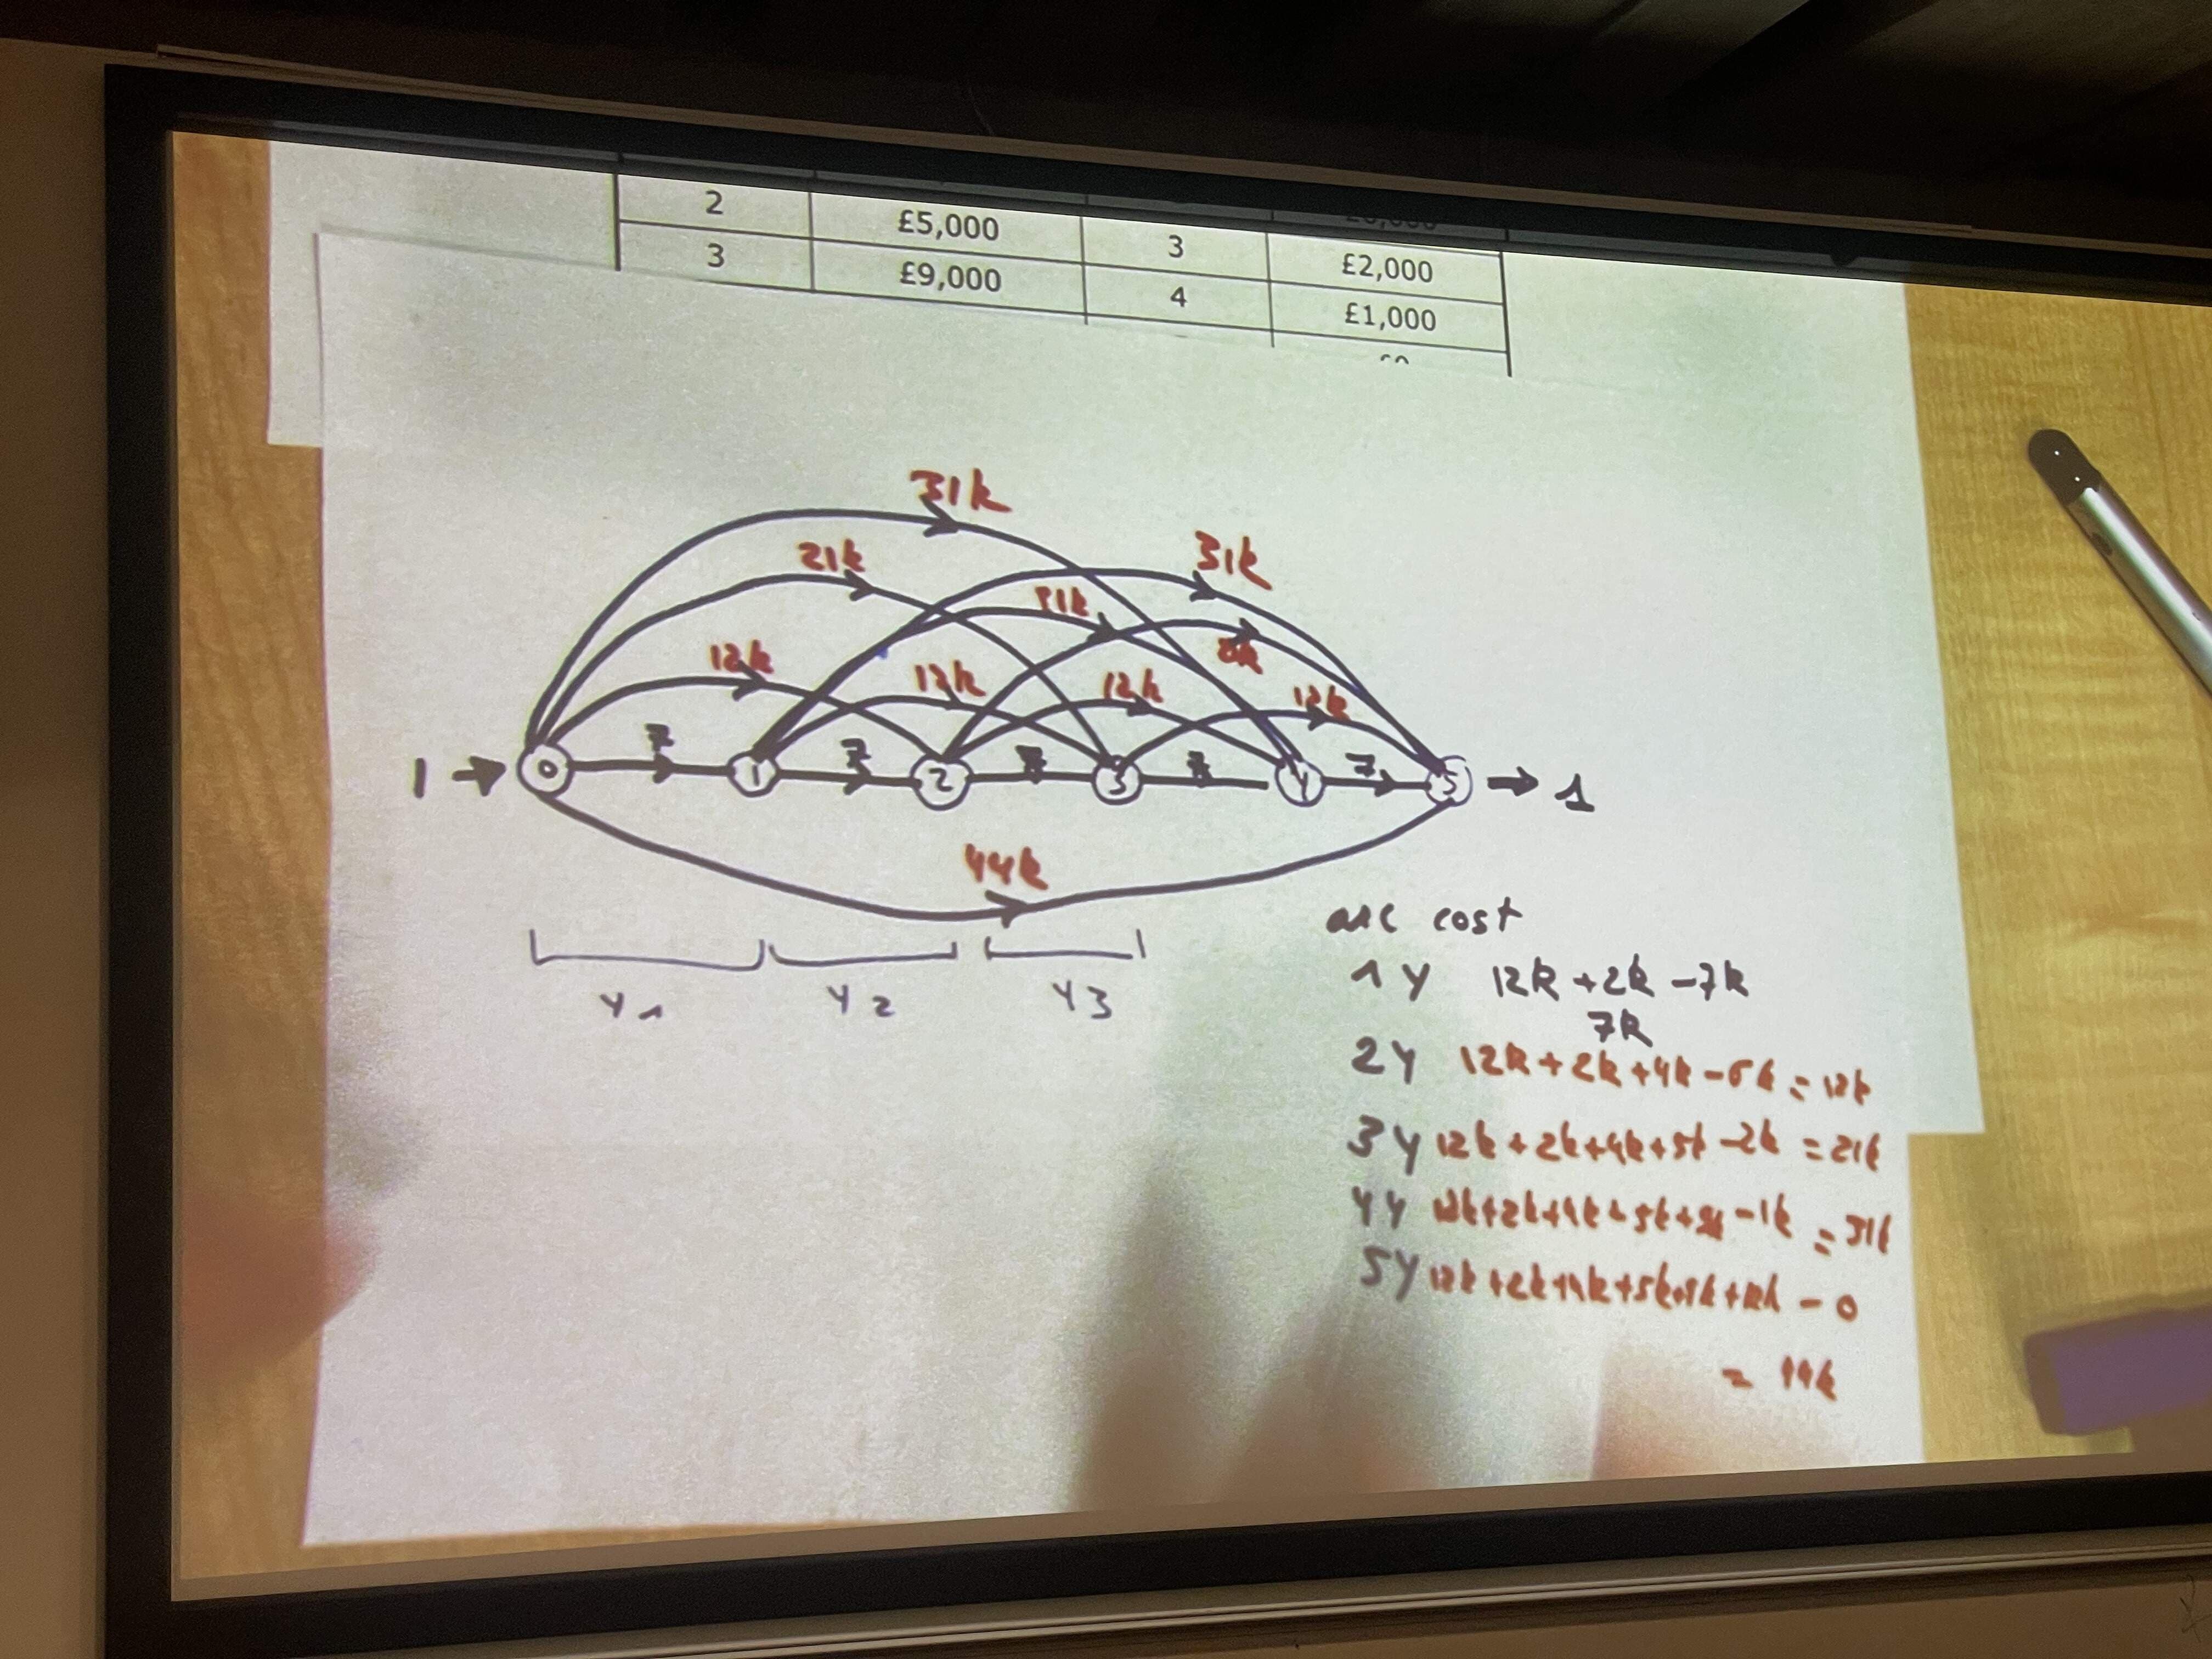 2 £5,000 3 £2,000
3 £9,000 4 £1,000
31k
21k 31k
12k 12k 12k 12k
7 7 7 7 7
1 → 0 1 2 3 4 5 → 1
44k
Y1 Y2 Y3
arc cost
1Y 12k+2k-7k
7k
2Y 12k+2k+4k-6k=12k
3Y 12k+2k+4k+5k-2k=21k
4Y 12k+2k+4k+5k+9k-1k=31k
5Y 12k+2k+4k+5k+9k+12k-0
= 44k